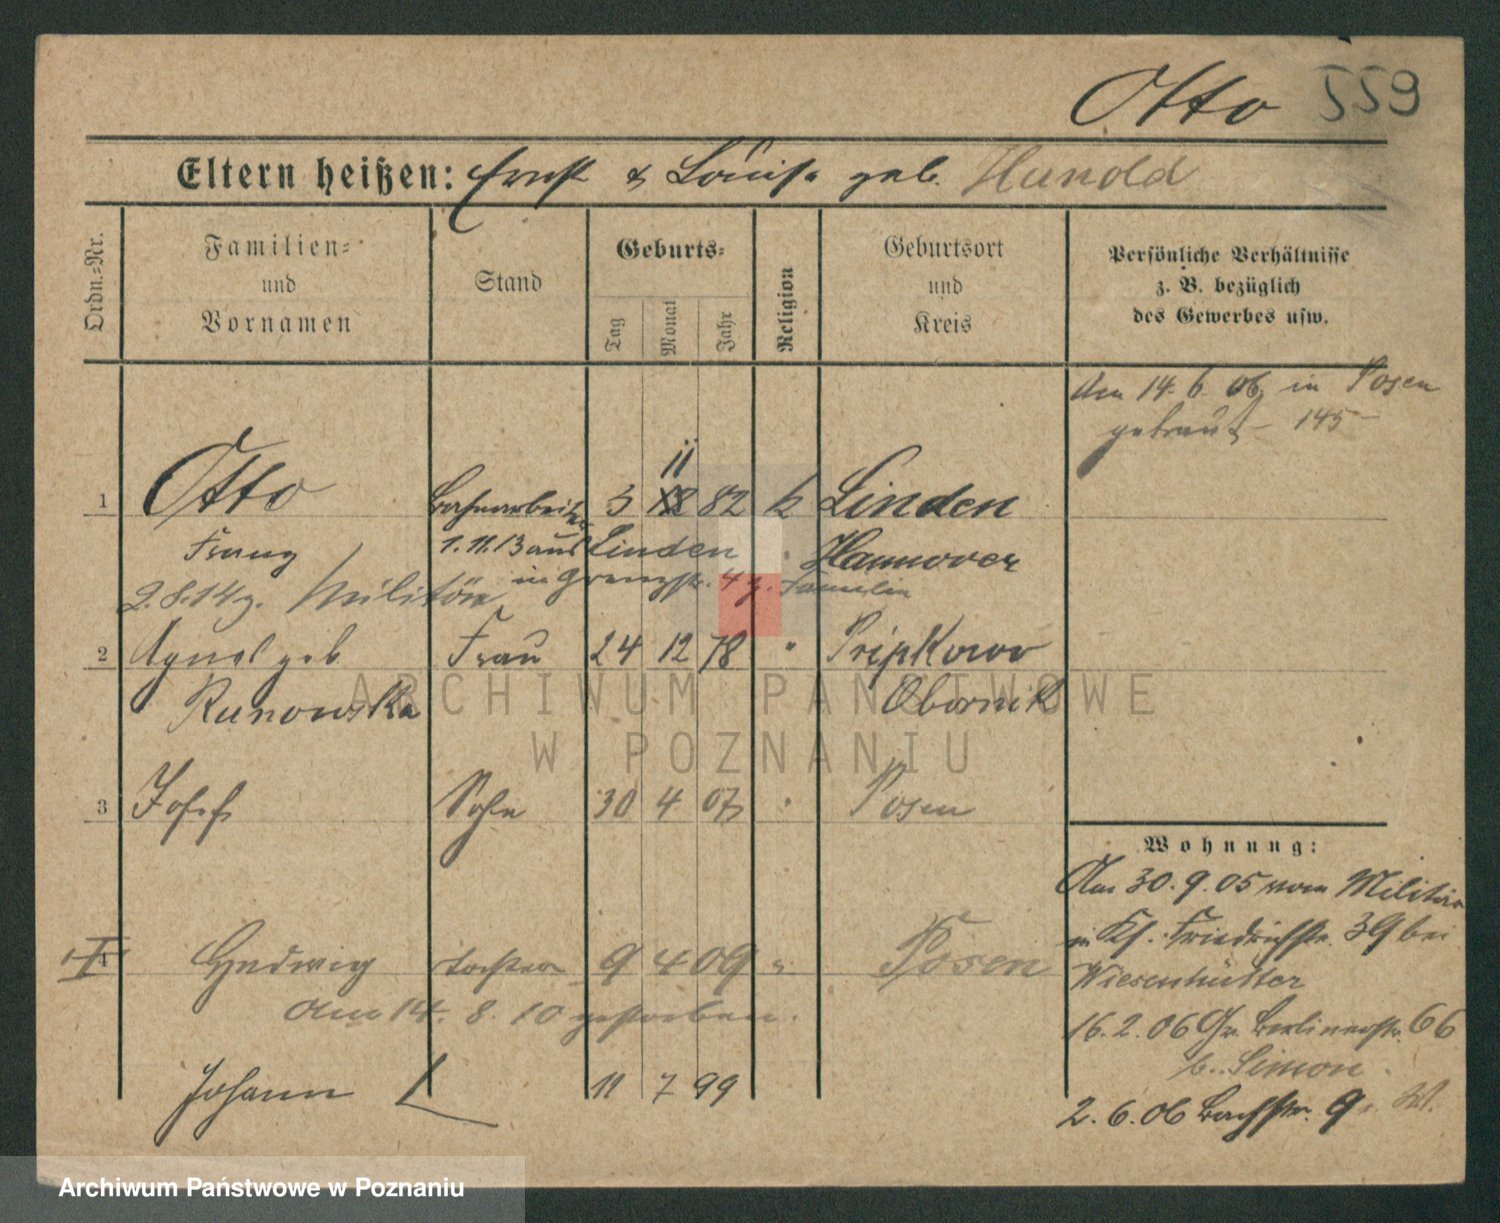 Otto 559
Eltern heißen: Ernst & Louise geb. Hunold
Ordn.=Nr.
Familien=
und
Vornamen
Stand
Geburts=
Tag
Monat
Jahr
Religion
Geburtsort
und
Kreis
Persönliche Verhältnisse
z. B. bezüglich
des Gewerbes usw.
Am 14. 6. 06 in Posen
getraut 145
11
1 Otto Bahnarbeiter 3 82 k Linden
Franz 1.11.13 aus Linden Hannover
2.8.14 z. Militär in Grenzstr. 4 z. Familie
2 Agnes geb. Frau 24 12 78 " Pripkowo
Runowska Obornik
3 Josef Sohn 30 4 07 " Posen
Wohnung:
Am 30. 9. 05 vom Militär
in Kf. Friedrichstr. 39 bei
Wiesenhütter
16. 2. 06 Gr. Berlinerstr. 66
b. Simon
2. 6. 06 Bachstr. 9. W.
4 Hedwig Tochter 9 4 09 " Posen
Am 14. 8. 10 gestorben.
Johann 11 7 99
ARCHIWUM PAŃSTWOWE
W POZNANIU
Archiwum Państwowe w Poznaniu